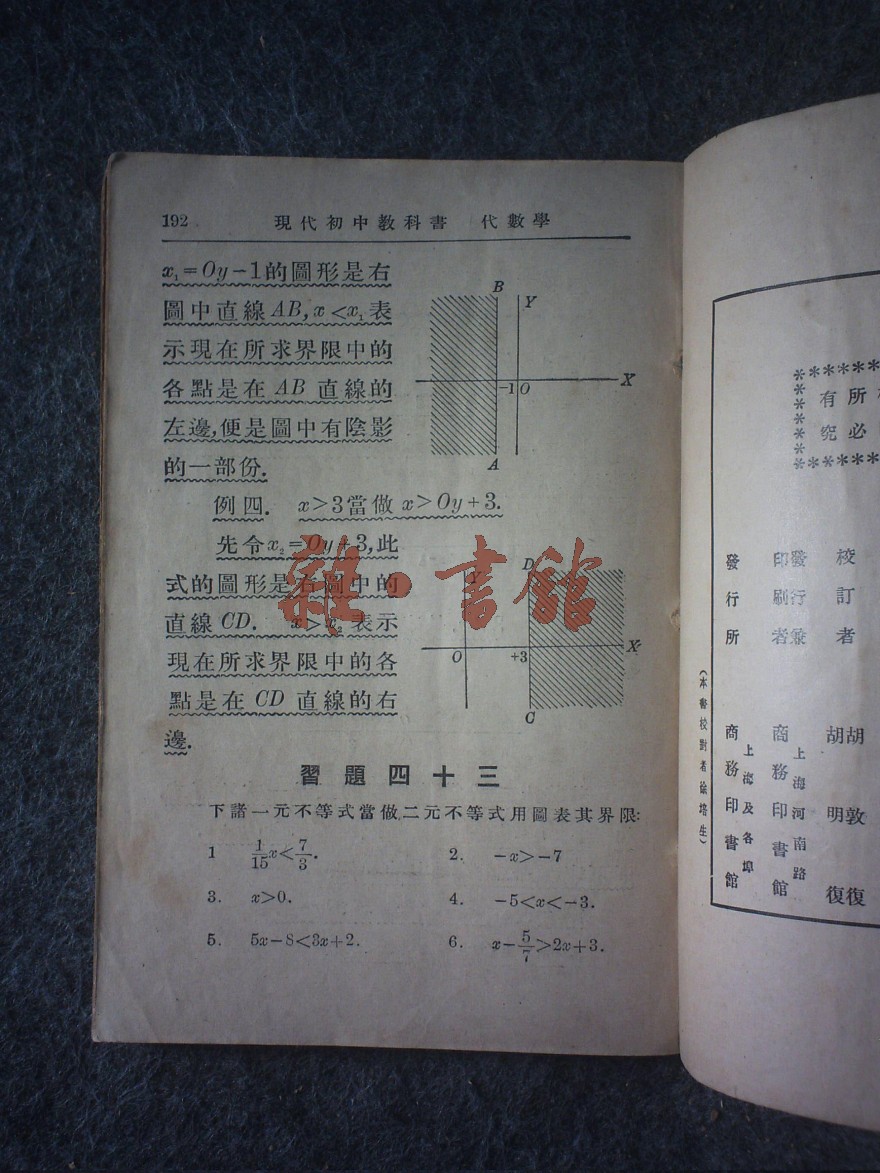 192 現代初中教科書 代數學
x₁=0y−1的圖形是右
圖中直線AB,x<x₁表
示現在所求界限中的
各點是在AB直線的
左邊,便是圖中有陰影
的一部份.
B
Y
X
−1
O
A
例四. x>3當做x>0y+3.
先令x₂=0y+3,此
式的圖形是右圖中的
直線CD. x>x₂表示
現在所求界限中的各
點是在CD直線的右
邊.
D
Y
X
O
+3
C
雜·書館
習題四十三
下諸一元不等式當做二元不等式用圖表其界限:
1 1/15x<7/3.
2. −x>−7
3. x>0.
4. −5<x<−3.
5. 5x−8<3x+2.
6. x−5/7>2x+3.
所有
必究
校訂者 胡敦復
胡明復
發行兼印刷者 上海河南路
商務印書館
發行所 上海及各埠
商務印書館